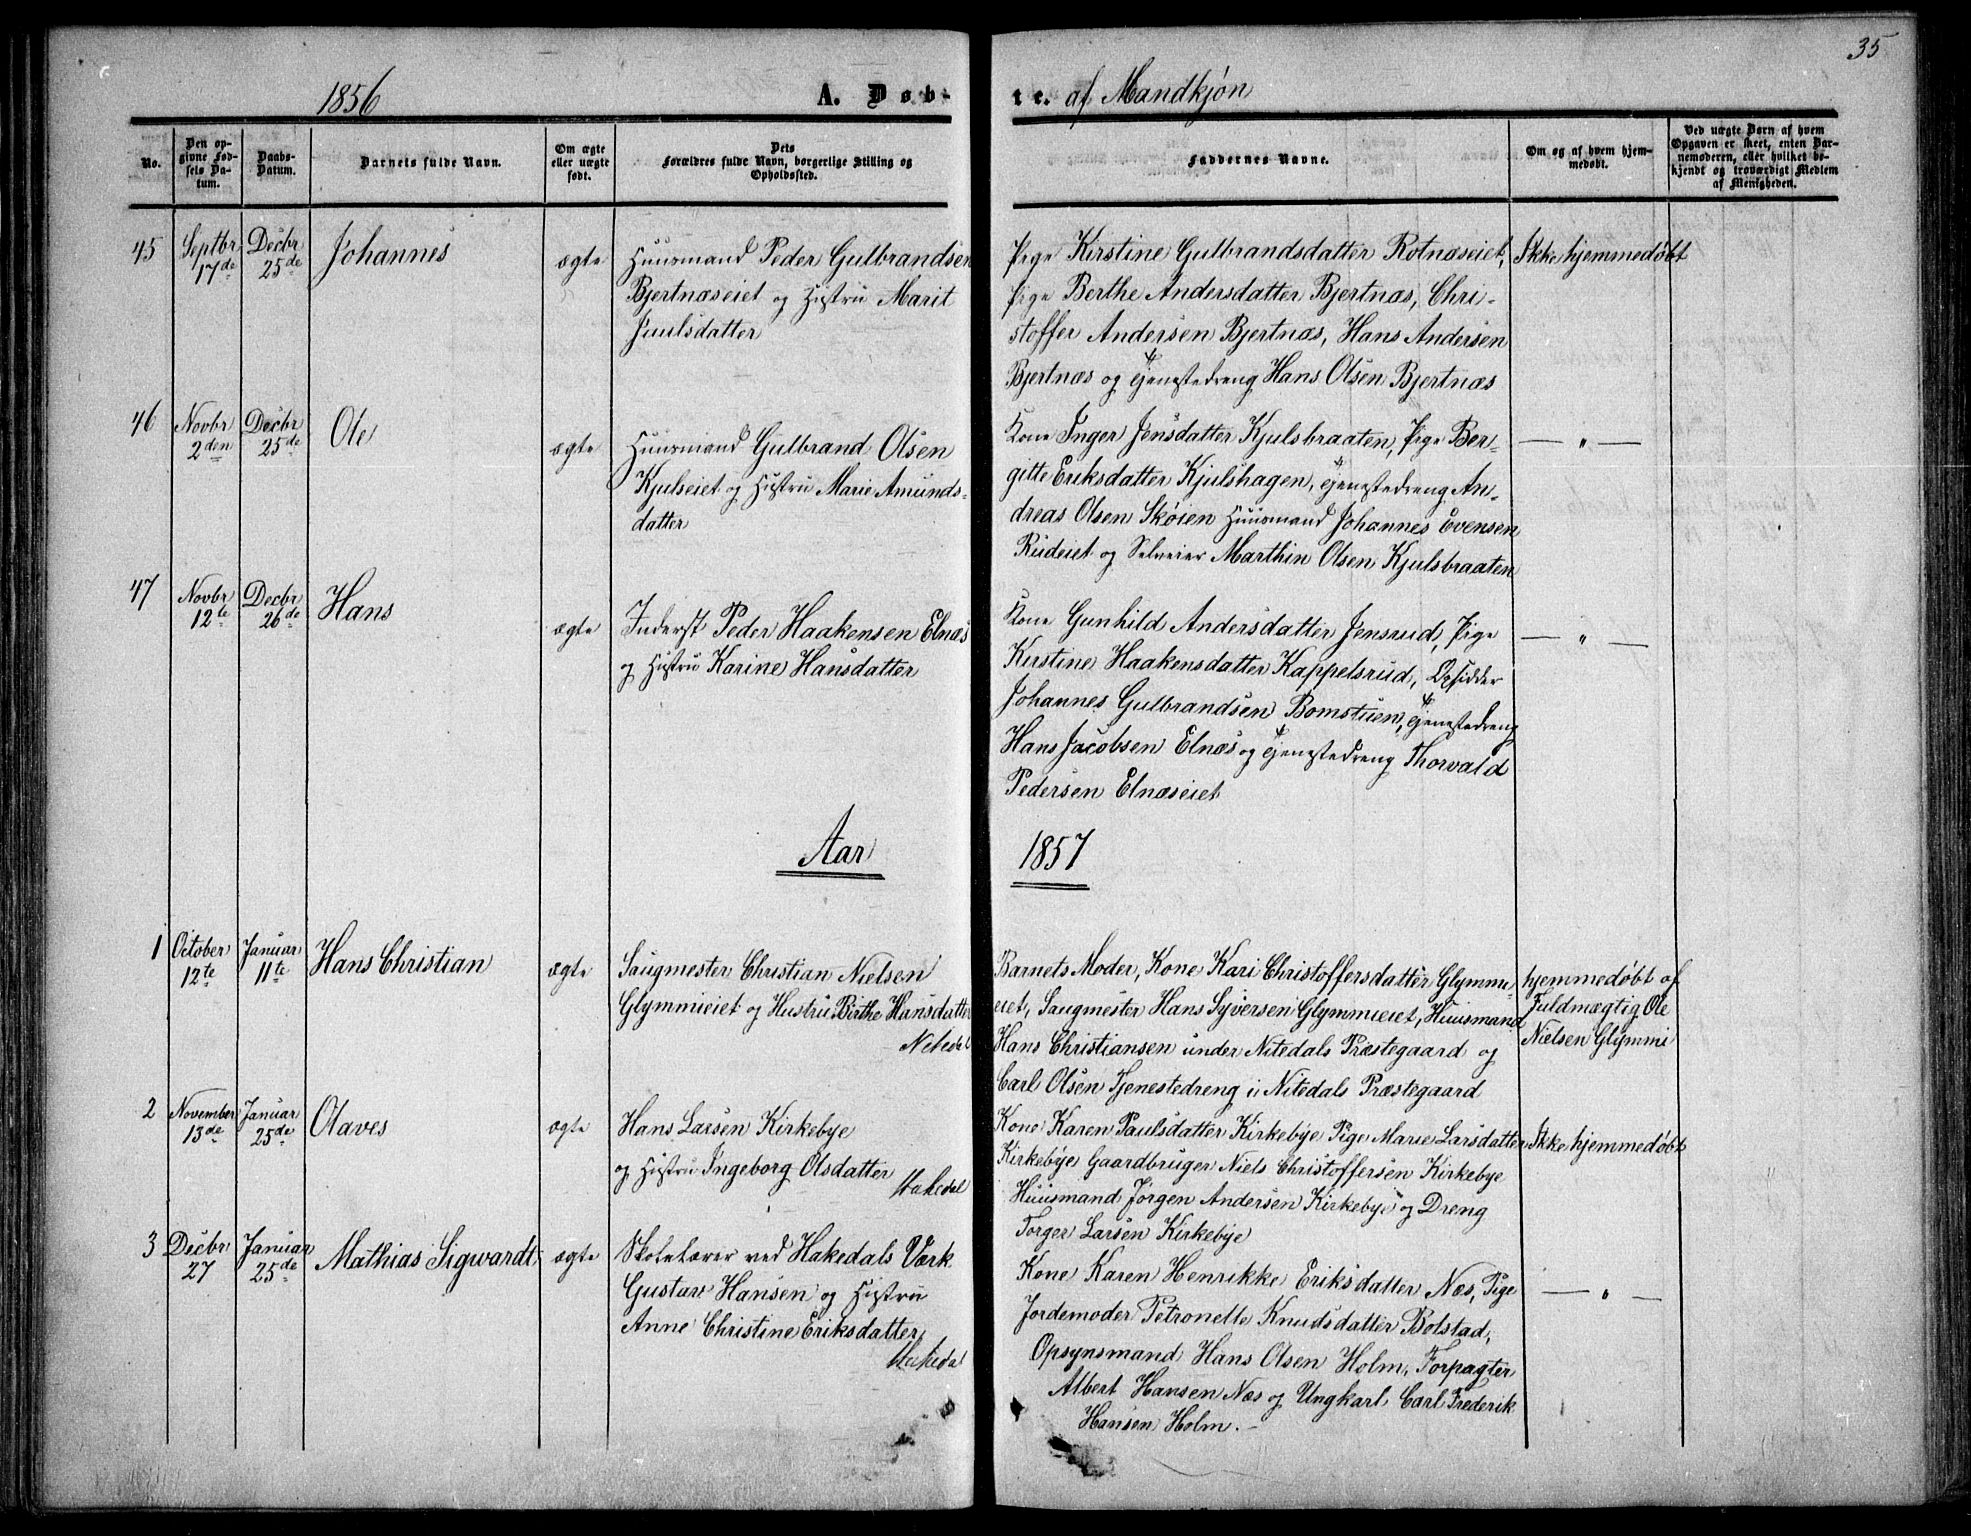 35
1856
A. Døb-
te. af Mandkjøn
No.
Den op-
givne Fød-
sels Da-
tum.
Daabs-
Datum.
Barnets fulde Navn.
Om ægte
eller uægte
født.
Dets
Forældres fulde Navn, borgerlige Stilling og
Opholdssted.
Faddernes Navne.
Om og af hvem hjem-
medøbt.
Ved uægte Børn af hvem
Opgaven er skeet, enten Bar-
nemoderen, eller hvilket be-
kjendt og troværdigt Medlem
af Menigheden.
45
Septbr
17de
Decbr
25de
Johannes
ægte
Huusmand Peder Gulbrandsen
Bjertnæseiet og Hustru Marit
Paulsdatter
Pige Kirstine Gulbrandsdatter Rotnæseiet,
Pige Berthe Andersdatter Bjertnæs, Chri-
stoffer Andersen Bjertnæs, Hans Andersen
Bjertnæs og Tjenestedreng Hans Olsen Bjertnæs
Ikke hjemmedøbt
46
Novbr
2den
Decbr
25de
Ole
ægte
Huusmand Gulbrand Olsen
Kjulseiet og Hustru Marie Amunds-
datter
Kone Inger Jensdatter Kjulsbraaten, Pige Ber-
gitte Eriksdatter Kjulshagen, Tjenestedreng An-
dreas Olsen Skøien Huusmand Johannes Evensen
Rudeiet og Selveier Marthin Olsen Kjulsbraaten
— " —
47
Novbr
12te
Decbr
26de
Hans
ægte
Inderst Peder Haakensen Elnæs
og Hustru Karine Hansdatter
Kone Gunhild Andersdatter Jensrud, Pige
Kirstine Haakensdatter Kappelsrud, Opsidder
Johannes Gulbrandsen Bomstuen, Tjenestedreng
Hans Jacobsen Elnæs og Tjenestedreng Thorvald
Pedersen Elnæseiet
— " —
Aar
1857
1
October
12te
Januar
11te
Hans Christian
ægte
Saugmester Christian Nielsen
Glymmieiet og Hustru Birthe Hansdatter
Nitedal
Barnets Moder, Kone Kari Christoffersdatter Glymmi-
eiet, Saugmester Hans Syversen Glymmieiet, Huusmand
Hans Christiansen under Nitedals Præstegaard og
Carl Olsen Tjenestedreng i Nitedals Præstegaard
hjemmedøbt af
Fuldmægtig Ole
Nielsen Glymmi
2
November
13de
Januar
25de
Olaves
ægte
Hans Larsen Kirkebye
og Hustru Ingeborg Olsdatter
Hakedal
Kone Karen Paulsdatter Kirkebye Pige Marie Larsdatter
Kirkebye Gaardbruger Niels Christoffersen Kirkebye
Huusmand Jørgen Andersen Kirkebye og Dreng
Torger Larsen Kirkebye
Ikke hjemmedøbt
3
Decbr
27
Januar
25de
Mathias Sigwardt
ægte
Skolelærer ved Hakedals Værk
Gustav Hansen og Hustru
Anne Christine Eriksdatter
Hakedal
Kone Karen Henrikke Eriksdatter Næs, Pige
Jordemoder Petronelle Knudsdatter Bolstad,
Opsynsmand Hans Olsen Holm, Forpagter
Albert Hansen Næs og Ungkarl Carl Frederik
Hansen Holm. –
— " —